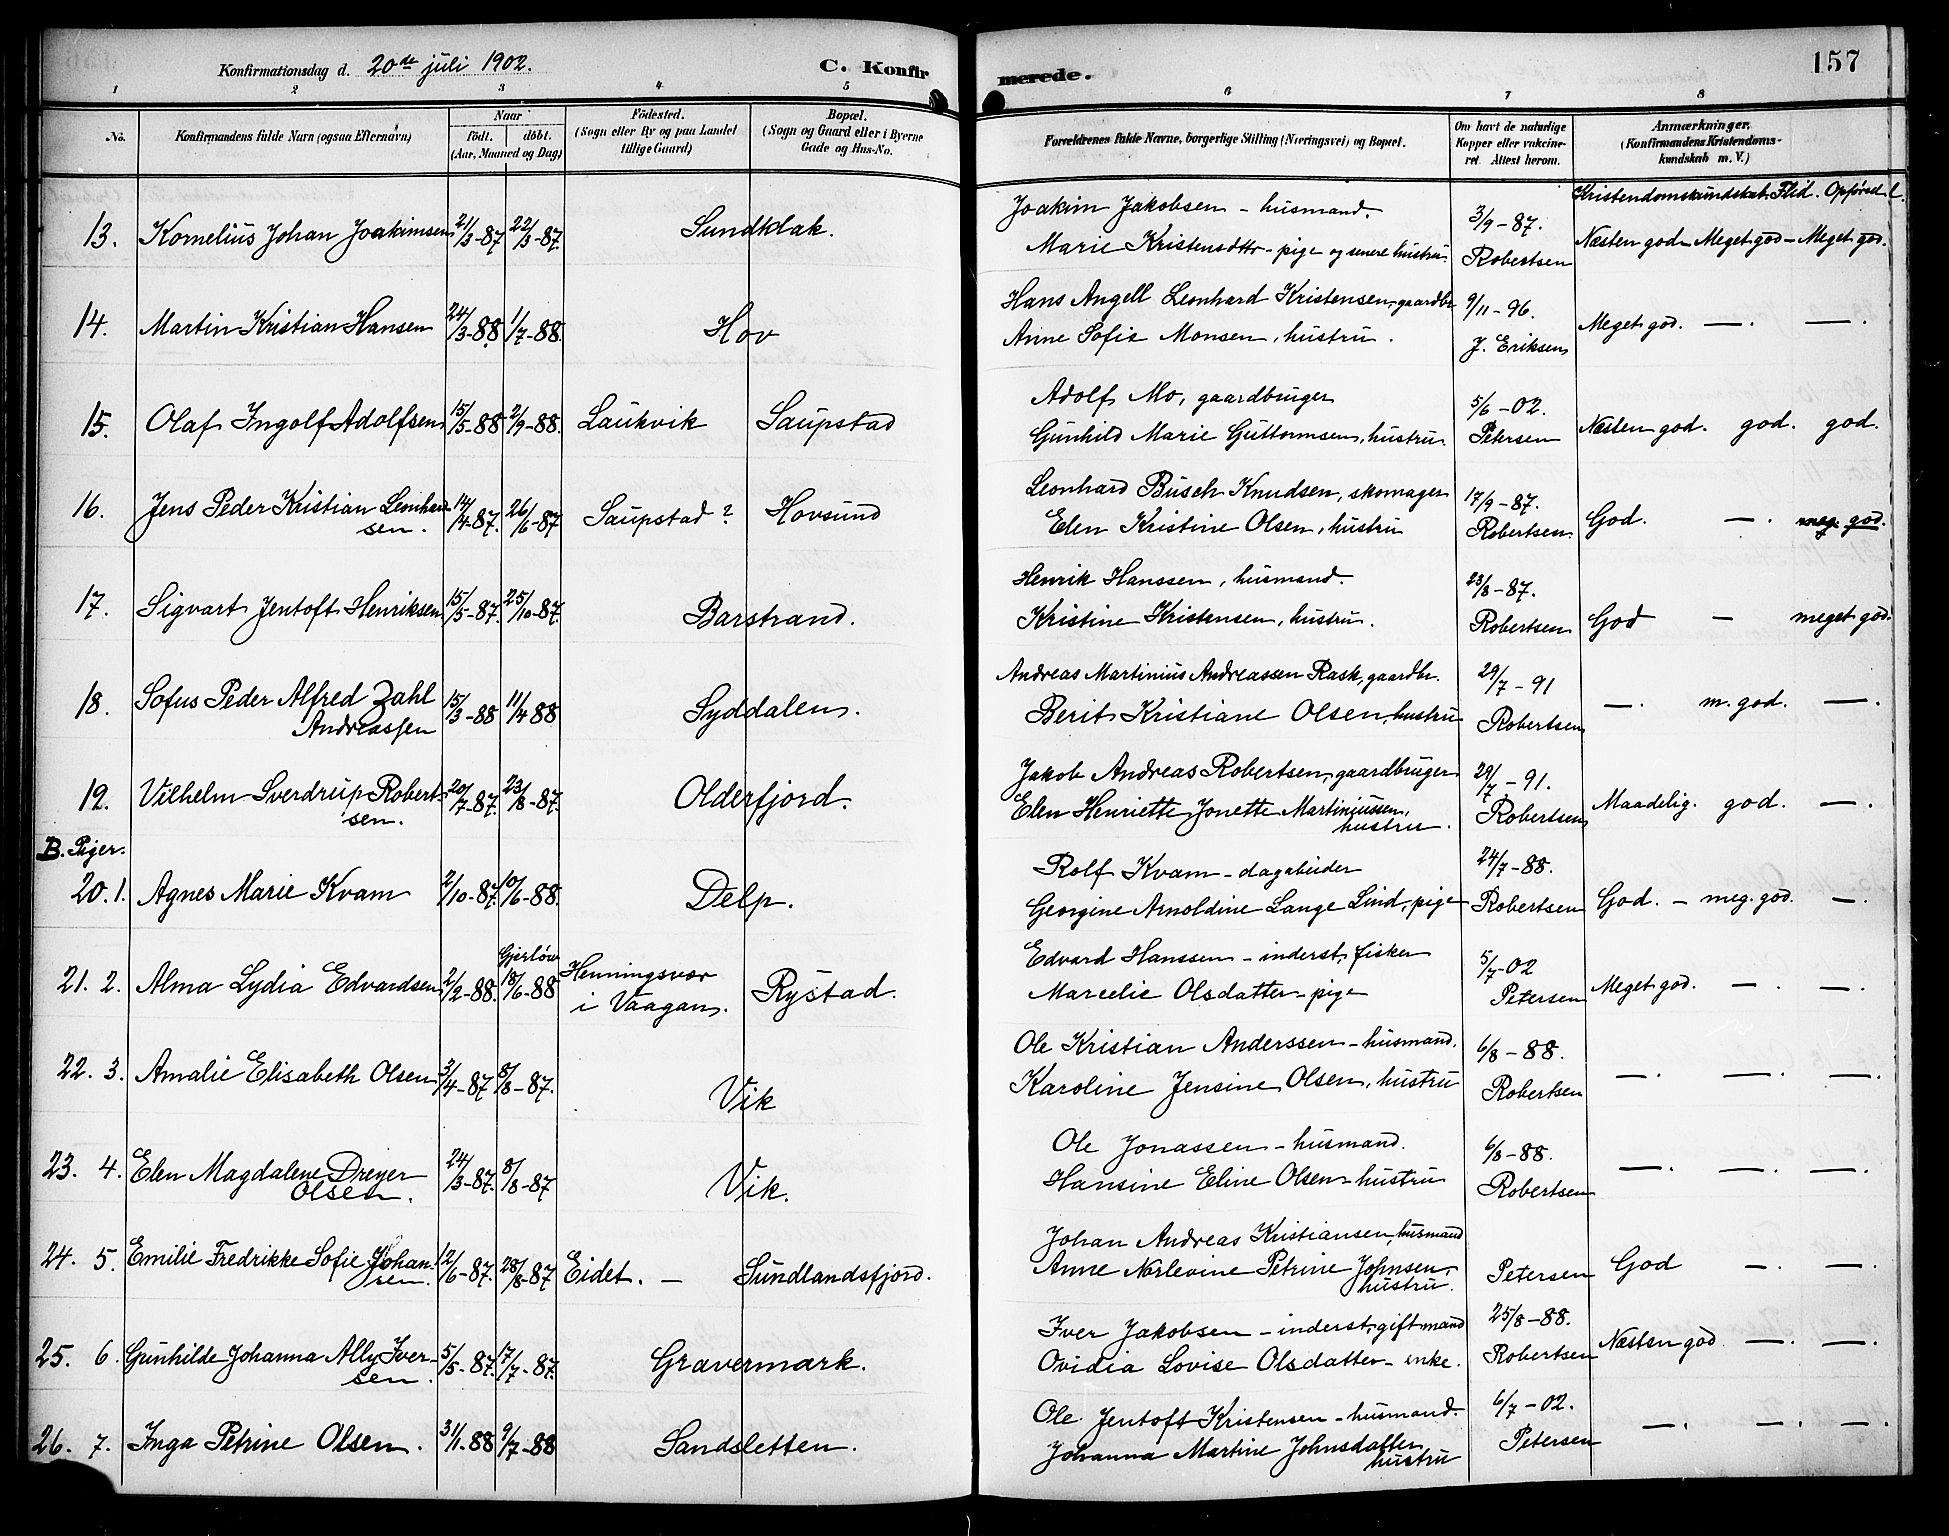 157
Konfirmationsdag d. 20de juli 1902. C. Konfirmerede.
1 2 3 4 5 6 7 8
No. Konfirmandens fulde Navn (ogsaa Efternavn) Naar födt. döbt. (Aar, Maaned og Dag) Födested. (Sogn eller By og paa Landet tillige Gaard) Bopæl. (Sogn og Gaard eller i Byerne Gade og Hus-No. Forældrenes fulde Navne, borgerlige Stilling (Næringsvei) og Bopæl. Om havt de naturlige Kopper eller vakcineret. Attest herom. Anmærkninger. (Konfirmandens Kristendomskundskab m. V.)
Kristendomskundskab. Flid. Opførsel.
13. Kornelius Johan Joakimsen 21/3-87 22/3-87. Sundklak. Joakim Jakobsen - husmand. 3/9-87.
Marie Kristensdttr - pige og senere hustru. Robertsen Næsten god - Meget god - Meget god.
14. Martin Kristian Hansen 24/3-88 1/7-88. Hov Hans Angell Leonhard Kristensen, gaardbr 9/11-96.
Anne Sofie Monsen, hustru. J. Eriksen Meget god. — . — .
15. Olaf Ingolf Adolfsen 15/5-88 2/9-88. Laukvik Saupstad Adolf Mo, gaardbruger 5/6-02.
Gunhild Marie Guttormsen, hustru. Petersen Næsten god. god. god.
16. Jens Peder Kristian Leonhardsen. 14/4-87. 26/6-87 Saupstad? Hovsund Leonhard Busch Knudsen, skomager 17/9-87.
Elen Kristine Olsen, hustru Robertsen. God. — . meg. god.
17. Sigvart Jentoft Henriksen 15/5-87. 25/10-87. Barstrand. Henrik Hanssen, husmand. 23/8-87.
Kristine Kristensen, hustru. Robertsen God — meget god.
18. Sofus Peder Alfred Zahl Andreassen 15/3-88 11/4 88 Syddalen. Andreas Martinius Andreassen Rask, gaardbr. 29/7-91
Berit Kristiane Olsen, hustru Robertsen — . m. god. — .
19. Vilhelm Sverdrup Robertsen. 20/7-87. 23/8-87. Olderfjord. Jakob Andreas Robertsen, gaardbruger 29/7-91.
Elen Henriette Jonette Martiniussen, hustru. Robertsen Maadelig. god. — .
B. Piger.
20. 1. Agnes Marie Kvam 2/10-87. 10/6-88. Delp. Rolf Kvam - dagarbeider 24/7-88.
Georgine Arnoldine Lange Lind, pige Robertsen God. - meg. god. — .
21. 2. Alma Lydia Edvardsen 2/2-88. Gjerløw 18/6-88 Henningsvær i Vaagan. Rystad. Edvard Hanssen - inderst, fisker 5/7-02
Marcelie Olsdatter - pige Petersen Meget god. — . — .
22. 3. Amalie Elisabeth Olsen 3/4-87 8/8-87. Vik Ole Kristian Anderssen - husmand. 6/8-88.
Karoline Jensine Olsen, hustru Robertsen — . — . — .
23. 4. Elen Magdalene Dreyer Olsen. 24/3-87. 8/8-87 Vik. Ole Jonassen - husmand. 6/8-88.
Hansine Eline Olsen - hustru Robertsen — . — . — .
24. 5. Emilie Fredrikke Sofie Johansen. 12/6-87. 28/8-87 Eidet. — Sundlandsfjord. Johan Andreas Kristiansen, husmand
Anne Norlevine Petrine Johnsen, hustru. Petersen God — . — .
25. 6. Gunhilde Johanna Ally Iversen. 5/5-87. 17/7-87. Gravermark. Iver Jakobsen - inderst, gift mand 25/8-88.
Ovidia Lovise Olsdatter - enke. Robertsen Næsten god. — . — .
26. 7. Inga Petrine Olsen. 31/1-88 9/7-88 Sandsletten. Ole Jentoft Kristensen - husmand. 6/7-02.
Johanna Martine Johnsdatter, hustru Petersen — . — . — .